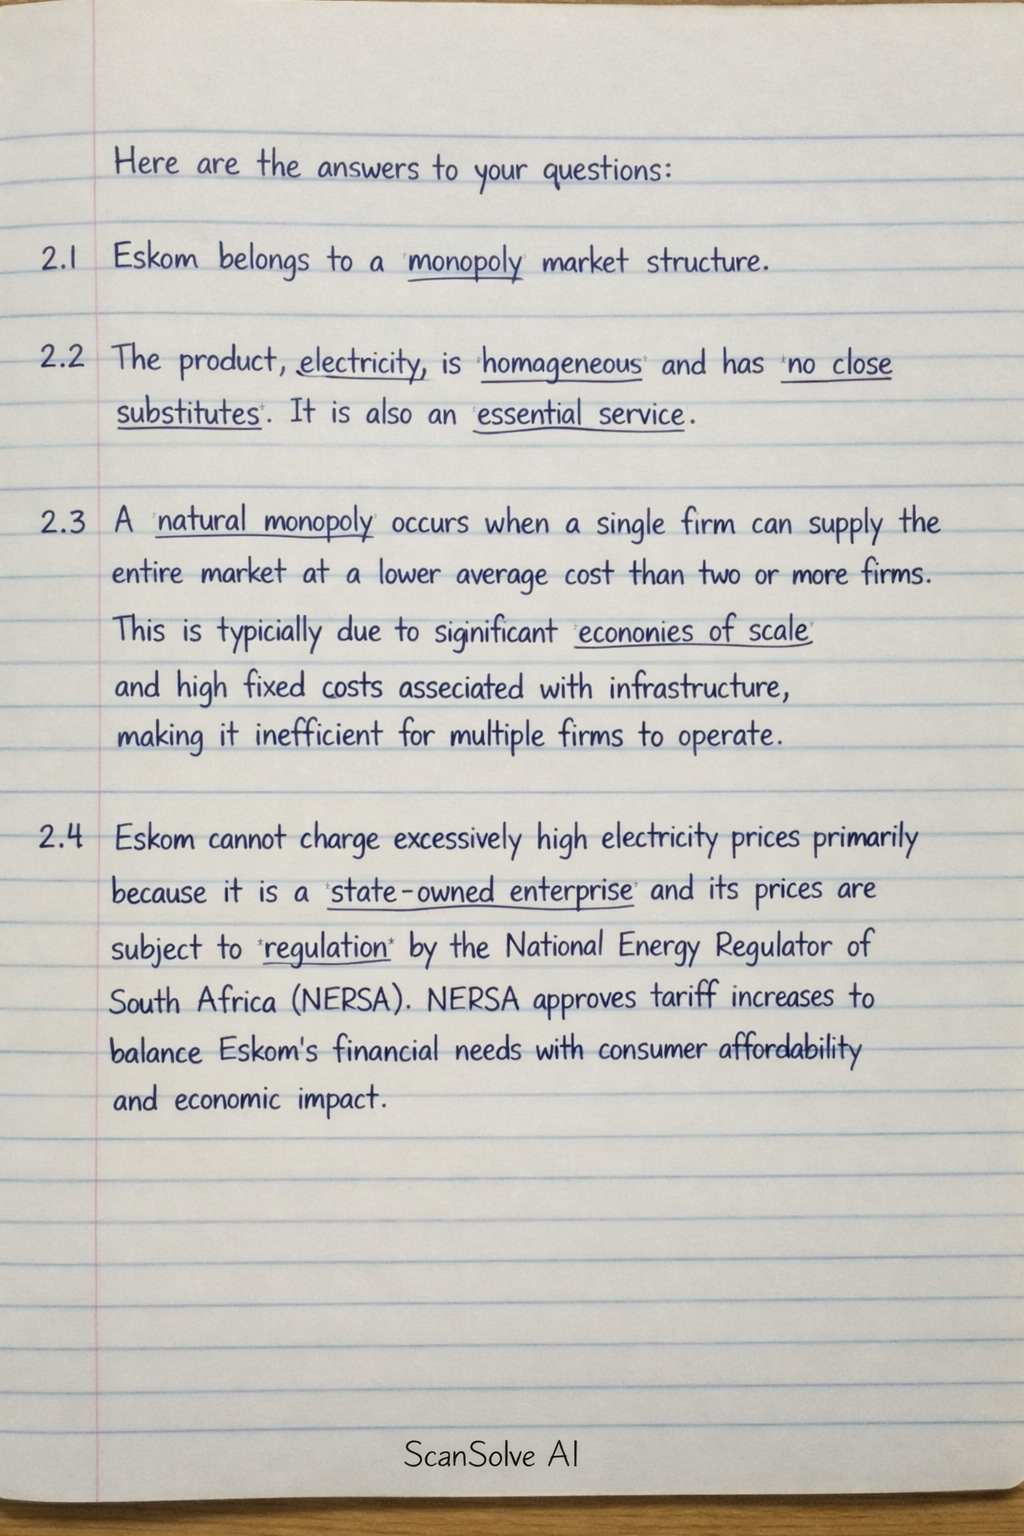 Here are the answers to your questions:
2.1 Eskom belongs to a 'monopoly' market structure.
2.2 The product, electricity, is 'homogeneous' and has 'no close
substitutes'. It is also an 'essential service'.
2.3 A 'natural monopoly' occurs when a single firm can supply the
entire market at a lower average cost than two or more firms.
This is typicially due to significant 'econonies of scale'
and high fixed costs asseciated with infrastructure,
making it inefficient for multiple firms to operate.
2.4 Eskom cannot charge excessively high electricity prices primarily
because it is a 'state-owned enterprise' and its prices are
subject to 'regulation' by the National Energy Regulator of
South Africa (NERSA). NERSA approves tariff increases to
balance Eskom's financial needs with consumer affordability
and economic impact.
ScanSolve AI